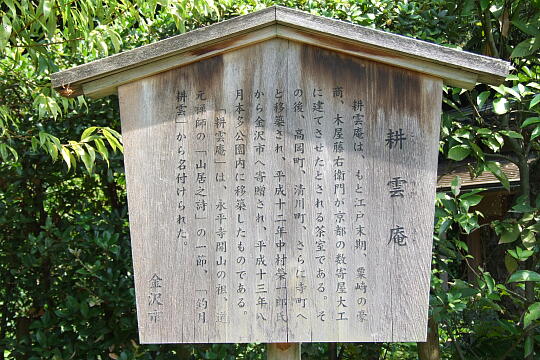 耕雲庵
耕雲庵は、もと江戸末期、粟崎の豪
商、木屋藤右衛門が京都の数寄屋大工
に建てさせたとされる茶室である。そ
の後、高岡町、清川町、さらに寺町へ
と移築され、平成十二年中村榮一郎氏
から金沢市へ寄贈され、平成十三年八
月本多公園内に移築したものである。
「耕雲庵」は、永平寺開山の祖、道
元禅師の「山居之詩」の一節、「釣月
耕雲」から名付けられた。
金沢市